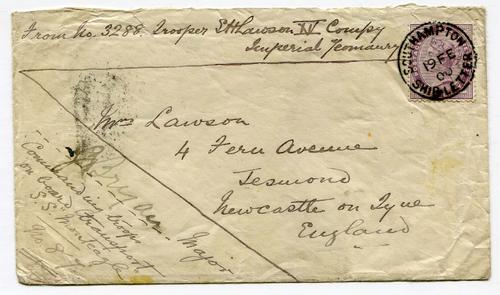 From No. 3288. Trooper S H Lawson IV Compy
Imperial Yeomanry
SOUTHAMPTON
19 FE
00
SHIP LETTER
Mrs Lawson
4 Fern Avenue
Jesmond
Newcastle on Tyne
England
Major
Commanding troops
on board transport
S.S. Monteagle
No. 8